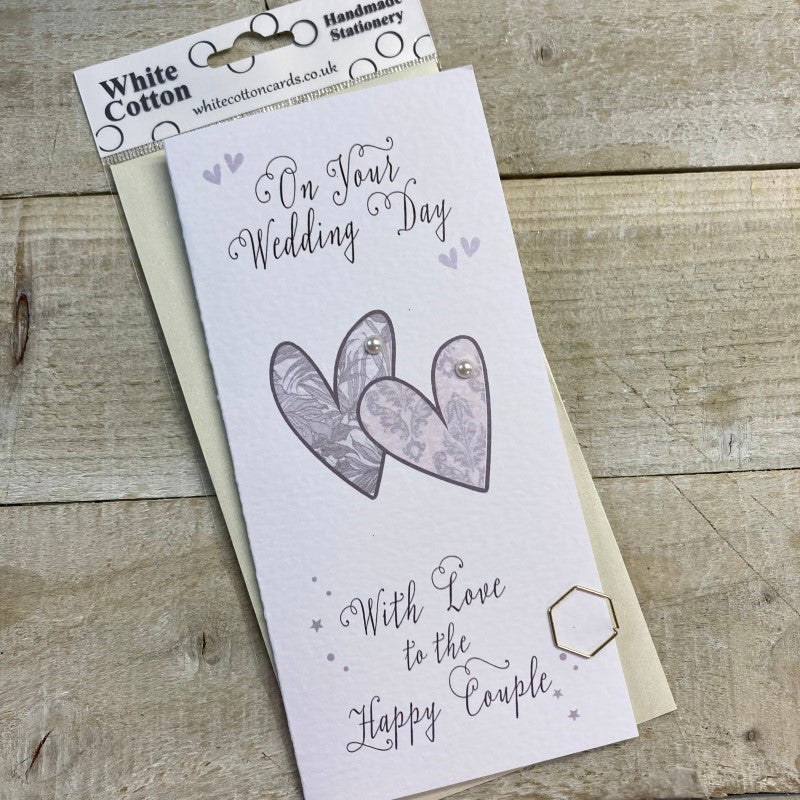 White
Cotton
Handmade
Stationery
whitecottoncards.co.uk
On Your
Wedding Day
With Love
to the
Happy Couple